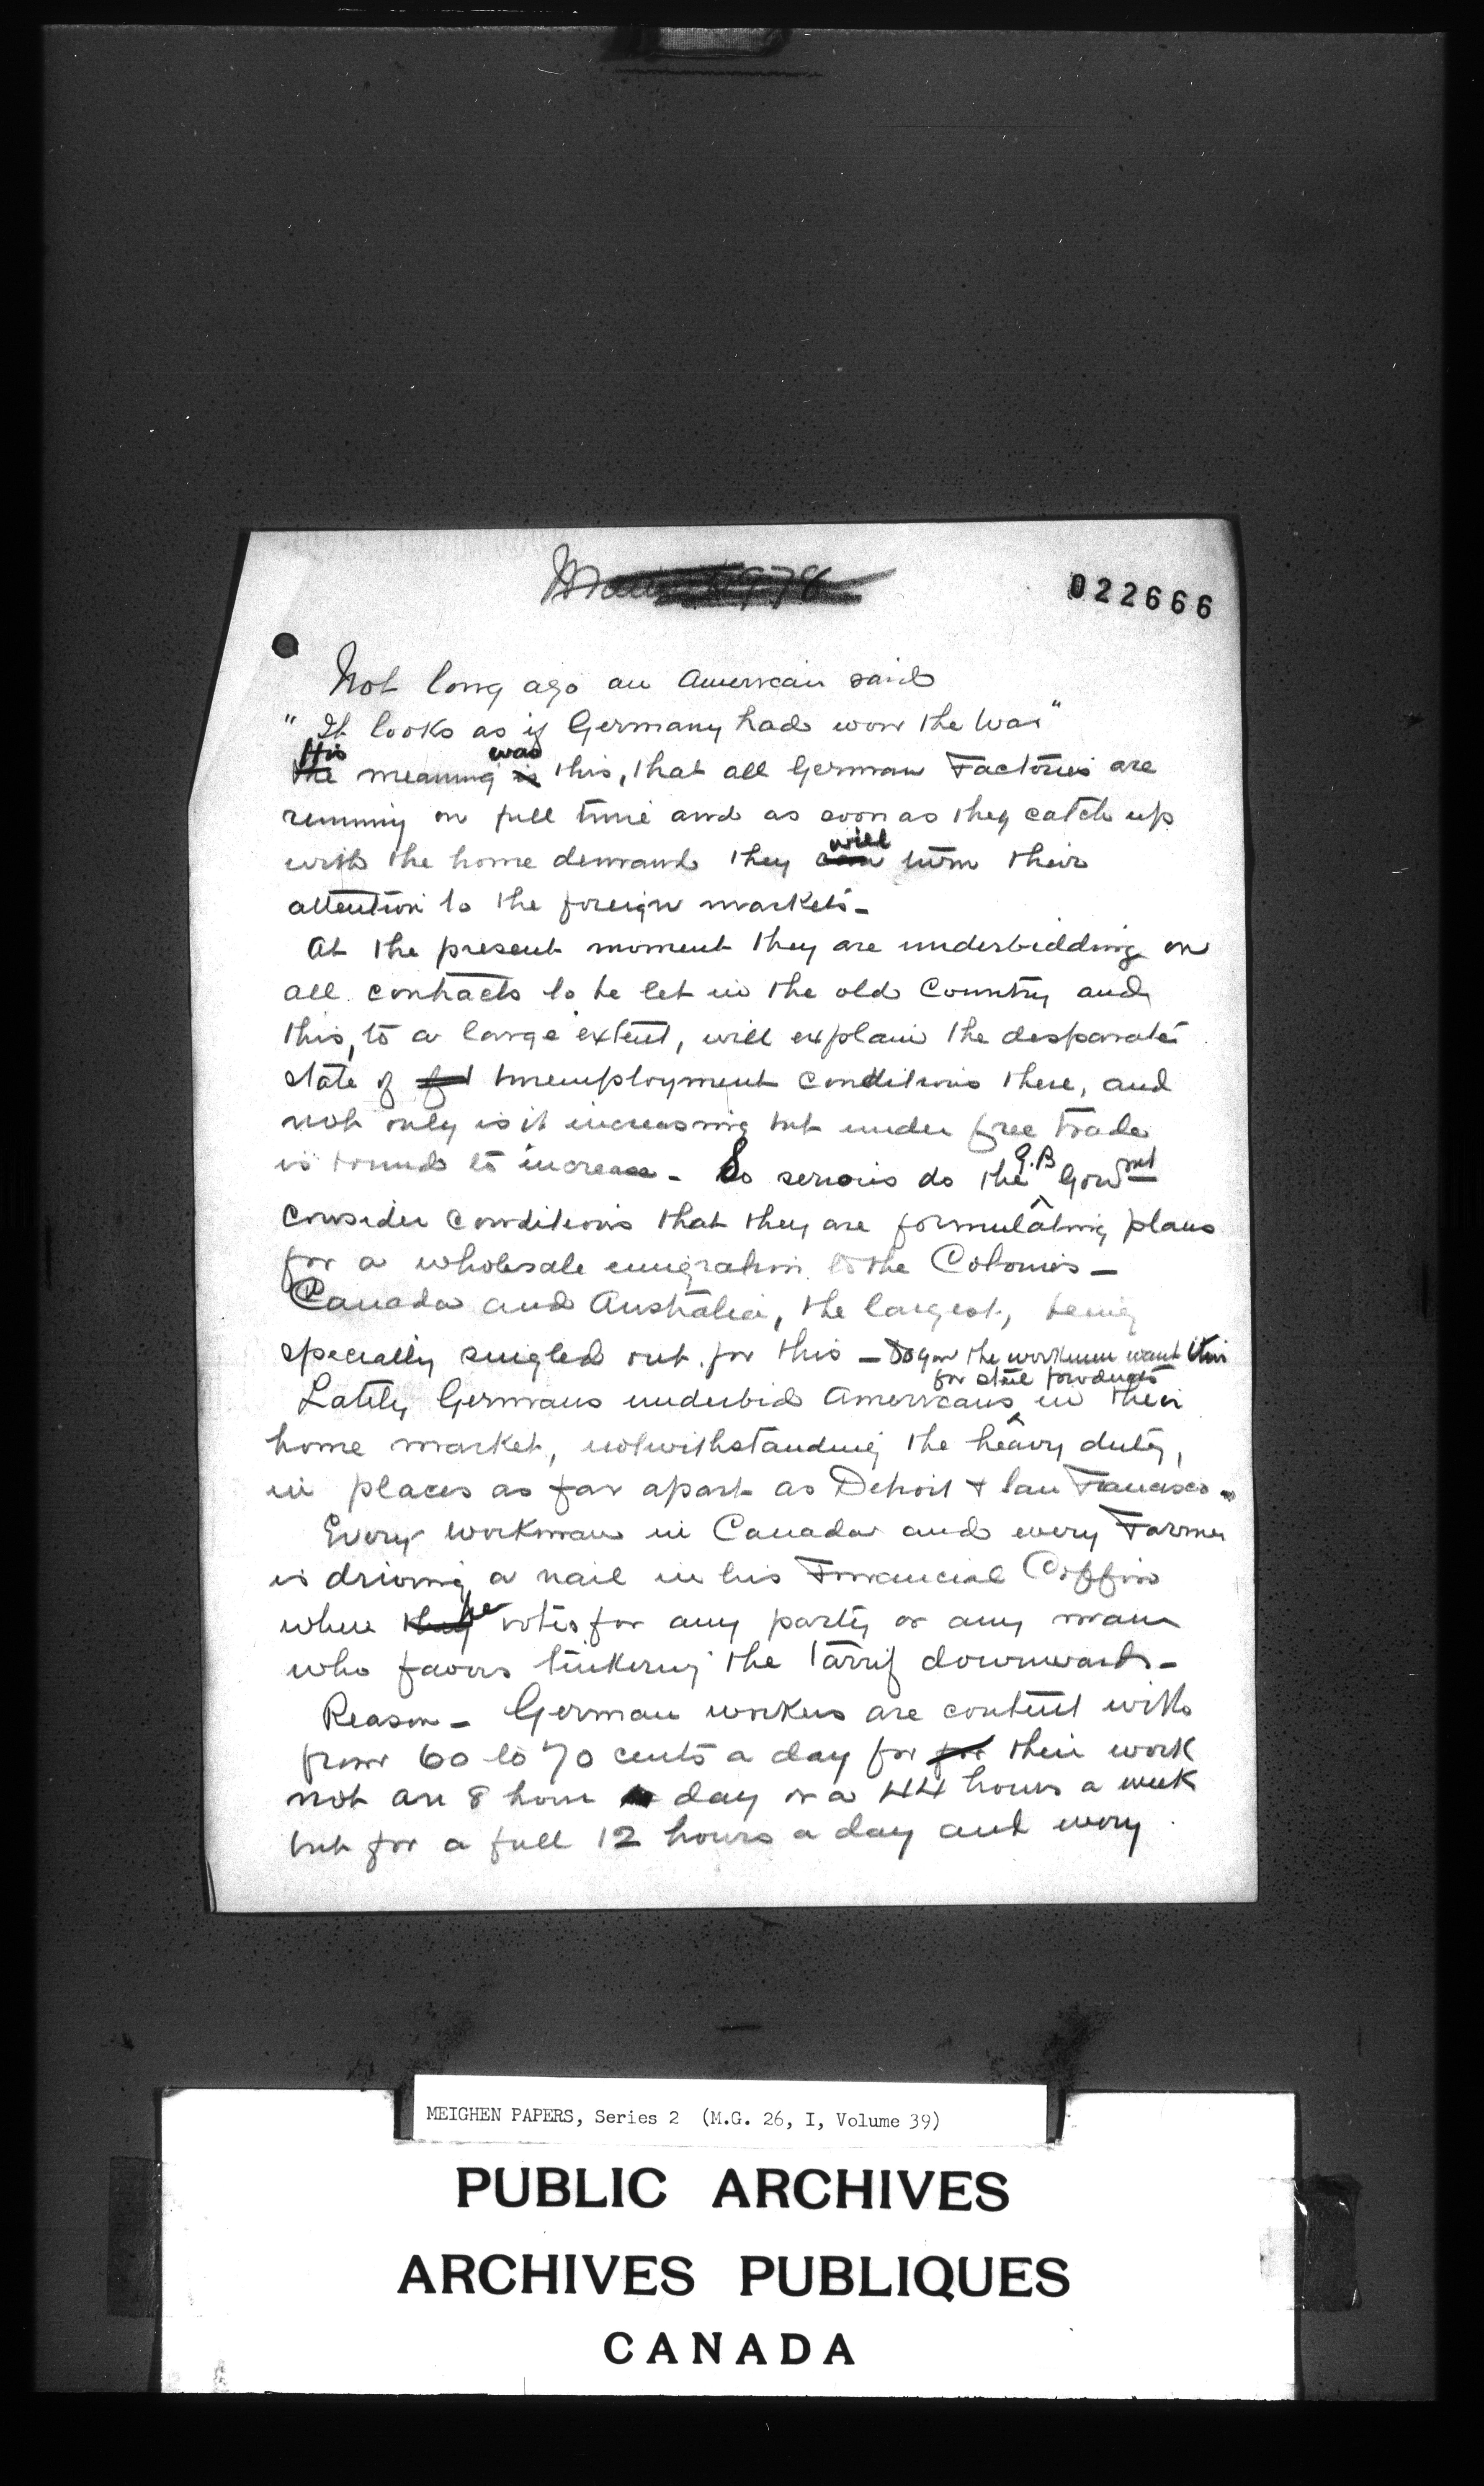 022666
Not long ago an American said
" It looks as if Germany had won the War "
His was
the meaning is this, that all German Factories are
running on full time and as soon as they catch up
will
with the home demand they can turn their
attention to the foreign markets -
At the present moment they are underbidding on
all contracts to be let in the old Country and
this, to a large extent, will explain the desparate
state of unemployment conditions there, and
not only is it increasing but under free trade
is bound to increase - So serious do the G.B Govmt
consider conditions that they are formulating plans
for a wholesale emigration to the Colonies -
Canada and Australia, the largest, being
specially singled out for this - Do you the workmen want this
for steel products
Lately Germans underbid Americans ^ in their
home market, notwithstanding the heavy duty,
in places as far apart as Detroit & San Francisco -
Every workman in Canada and every Farmer
is driving a nail in his Financial Coffin
when they he votes for any party or any man
who favors tinkering the Tarrif downwards -
Reason - German workers are content with
from 60 to 70 cents a day for for their work
not an 8 hour day or a 44 hours a week
but for a full 12 hours a day and every
MEIGHEN PAPERS, Series 2 (M.G. 26, I, Volume 39)
PUBLIC ARCHIVES
ARCHIVES PUBLIQUES
CANADA